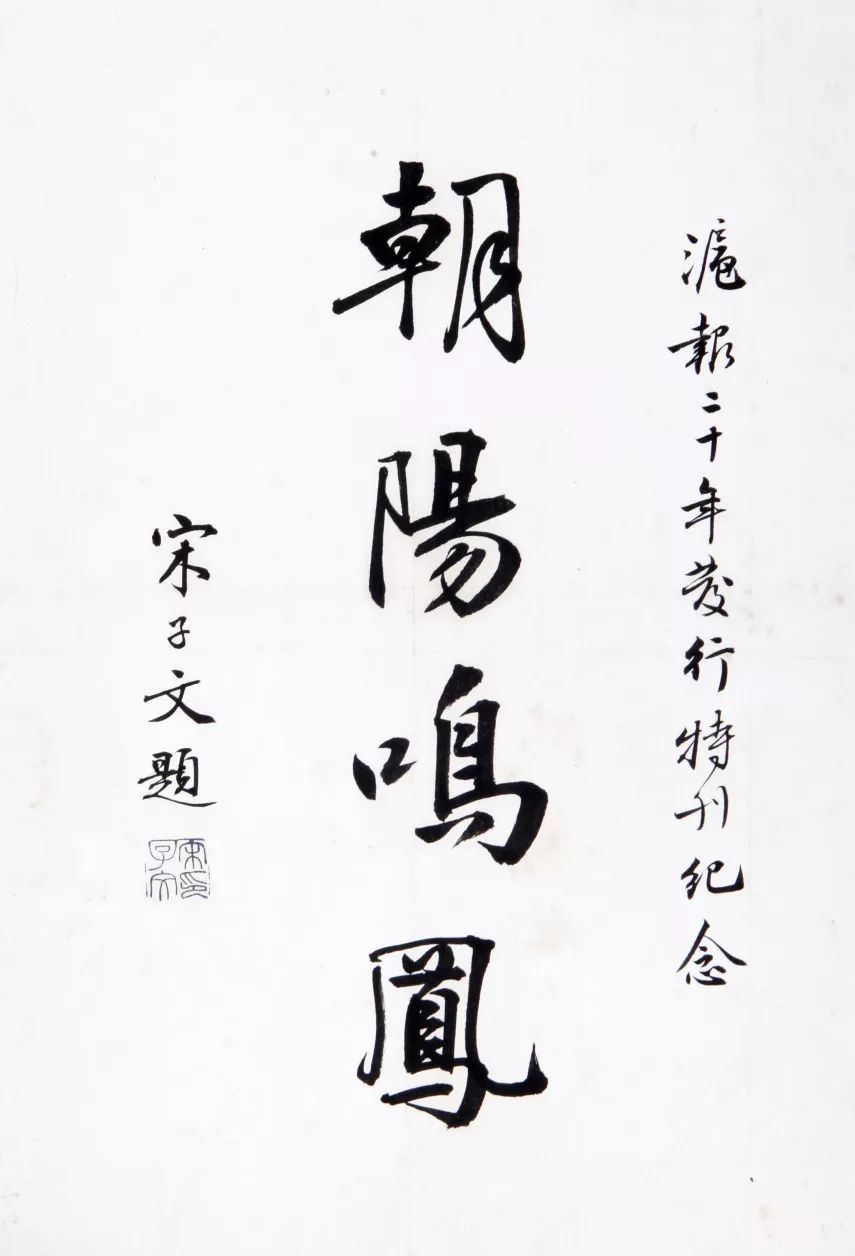 滬報二十年發行特刊紀念
朝陽鳴鳳
宋子文題
宋子文印